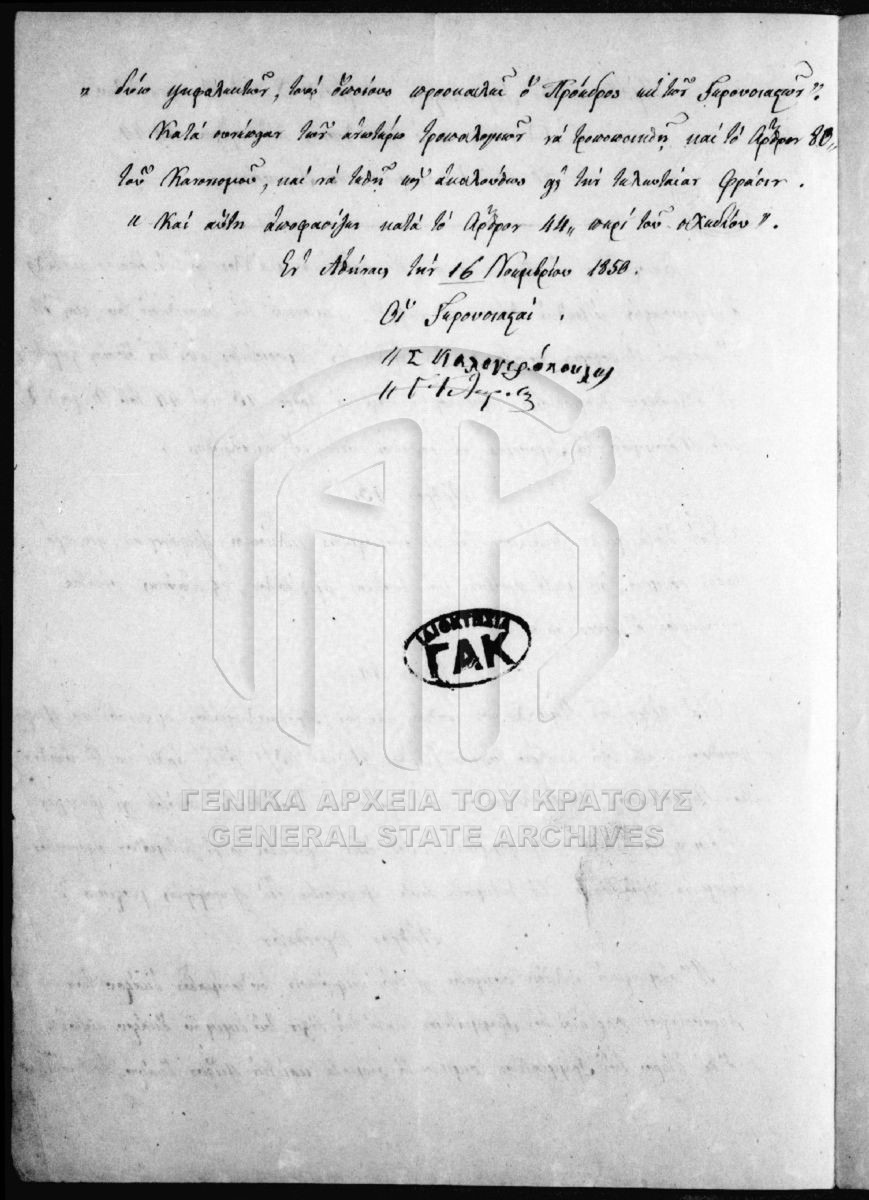 " δύω ψηφολεκτῶν, τοὺς ὁποίους προσκαλεῖ ὁ Πρόεδρος ἐκ τῶν Γερουσιαστῶν".
Κατὰ συνέπειαν τῶν ἀνωτέρω τροπολογιῶν νὰ τροποποιηθῇ καὶ τὸ Ἄρθρον 80
τοῦ Κανονισμοῦ, καὶ νὰ τεθῇ ὡς ἀκολούθως εἰς τὴν τελευταίαν φράσιν.
" Καὶ αὕτη ἀποφασίζει κατὰ τὸ Ἄρθρον 44 περὶ τοῦ σχεδίου".
Ἐν Ἀθήναις τὴν 16 Νοεμβρίου 1850.
Οἱ Γερουσιασταί.
" Σ Καλογερόπουλος
ΙΔΙΟΚΤΗΣΙΑ
ΓΑΚ
ΓΕΝΙΚΑ ΑΡΧΕΙΑ ΤΟΥ ΚΡΑΤΟΥΣ
GENERAL STATE ARCHIVES